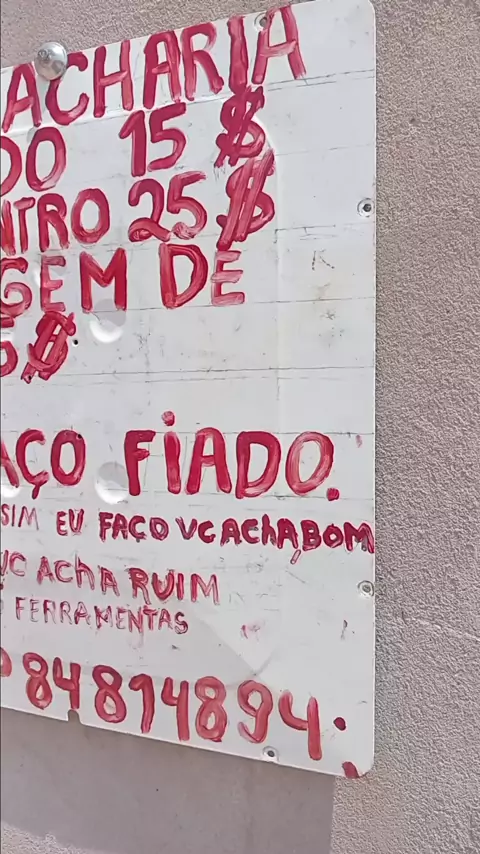 ACHARIA
DO 15 $
NTRO 25 $
GEM DE
5 $
AÇO FIADO.
SIM EU FAÇO VC AChA, BOM
VC AChA RUIM
FERRAMENTAS
984814894.